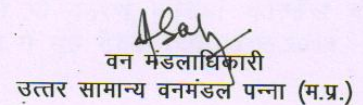 वन मंडलाधिकारी
उत्तर सामान्य वनमंडल पन्ना (म.प्र.)